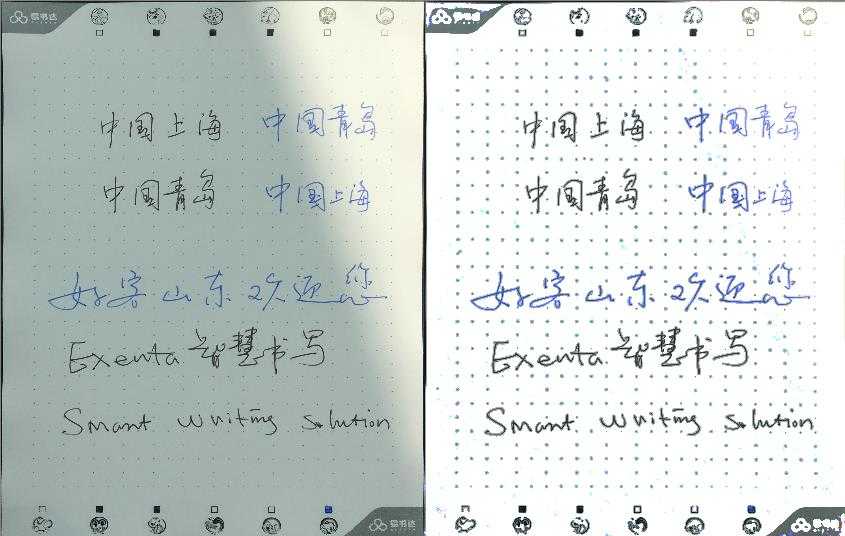 易书达 易书达
中国上海 中国青岛 中国上海 中国青岛
中国青岛 中国上海 中国青岛 中国上海
好客山东欢迎您 好客山东欢迎您
Exenta 智慧书写 Exenta 智慧书写
Smart writing solution Smart writing solution
易书达 易书达